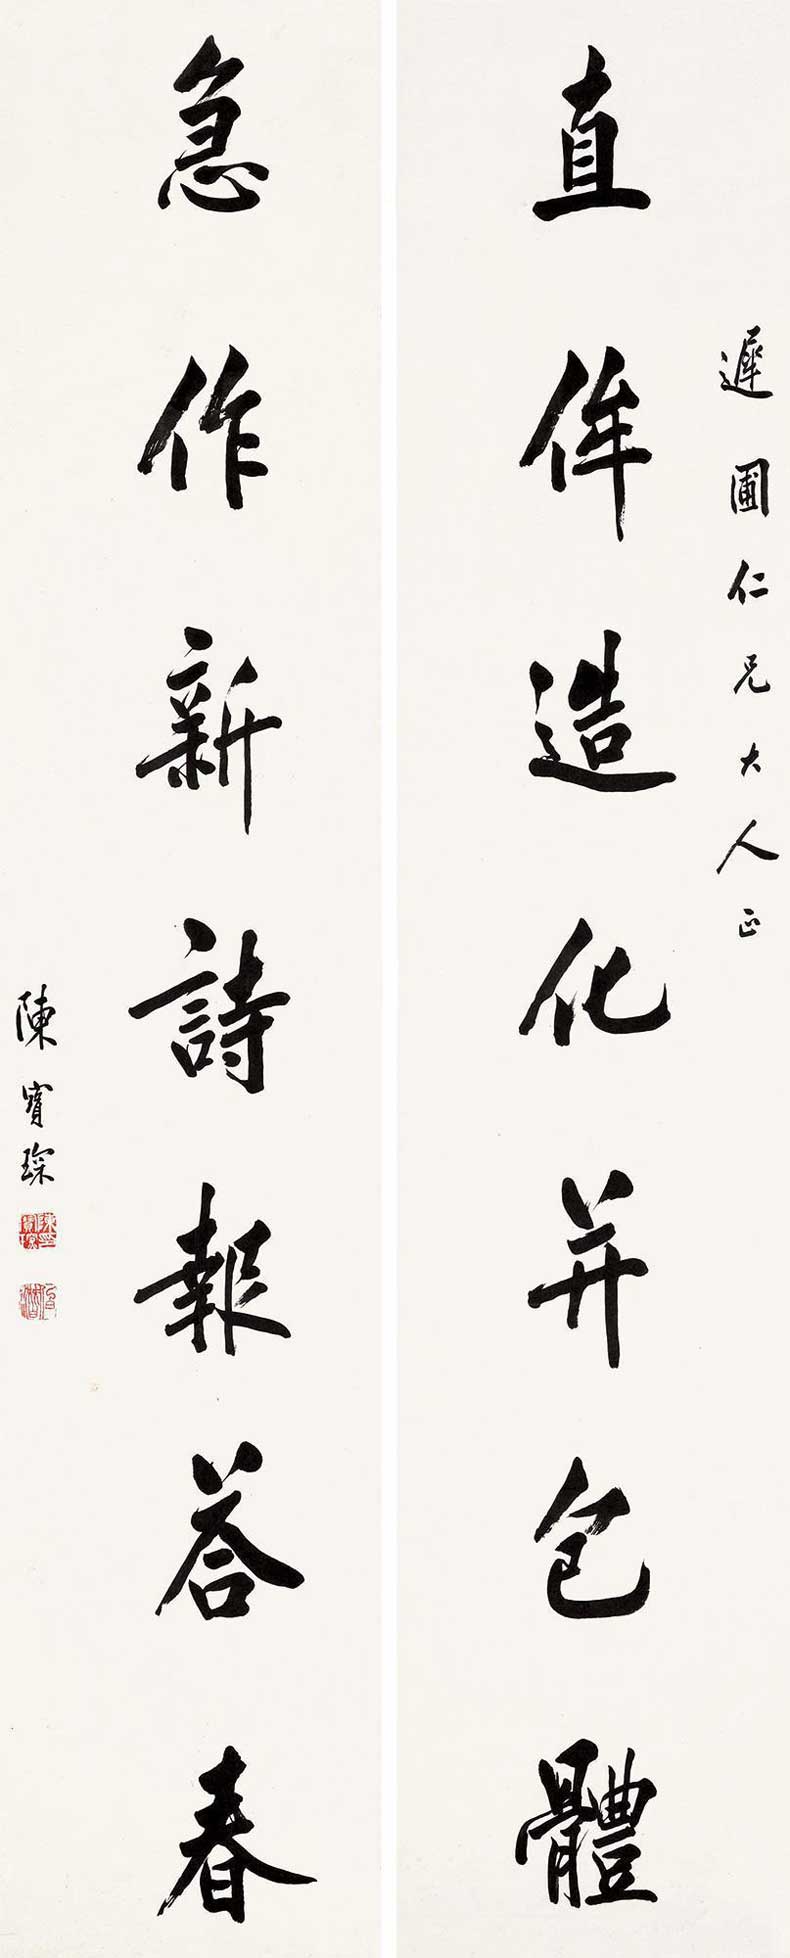 遲圃仁兄大人正
直侔造化并包體
急作新詩報荅春
陳寶琛